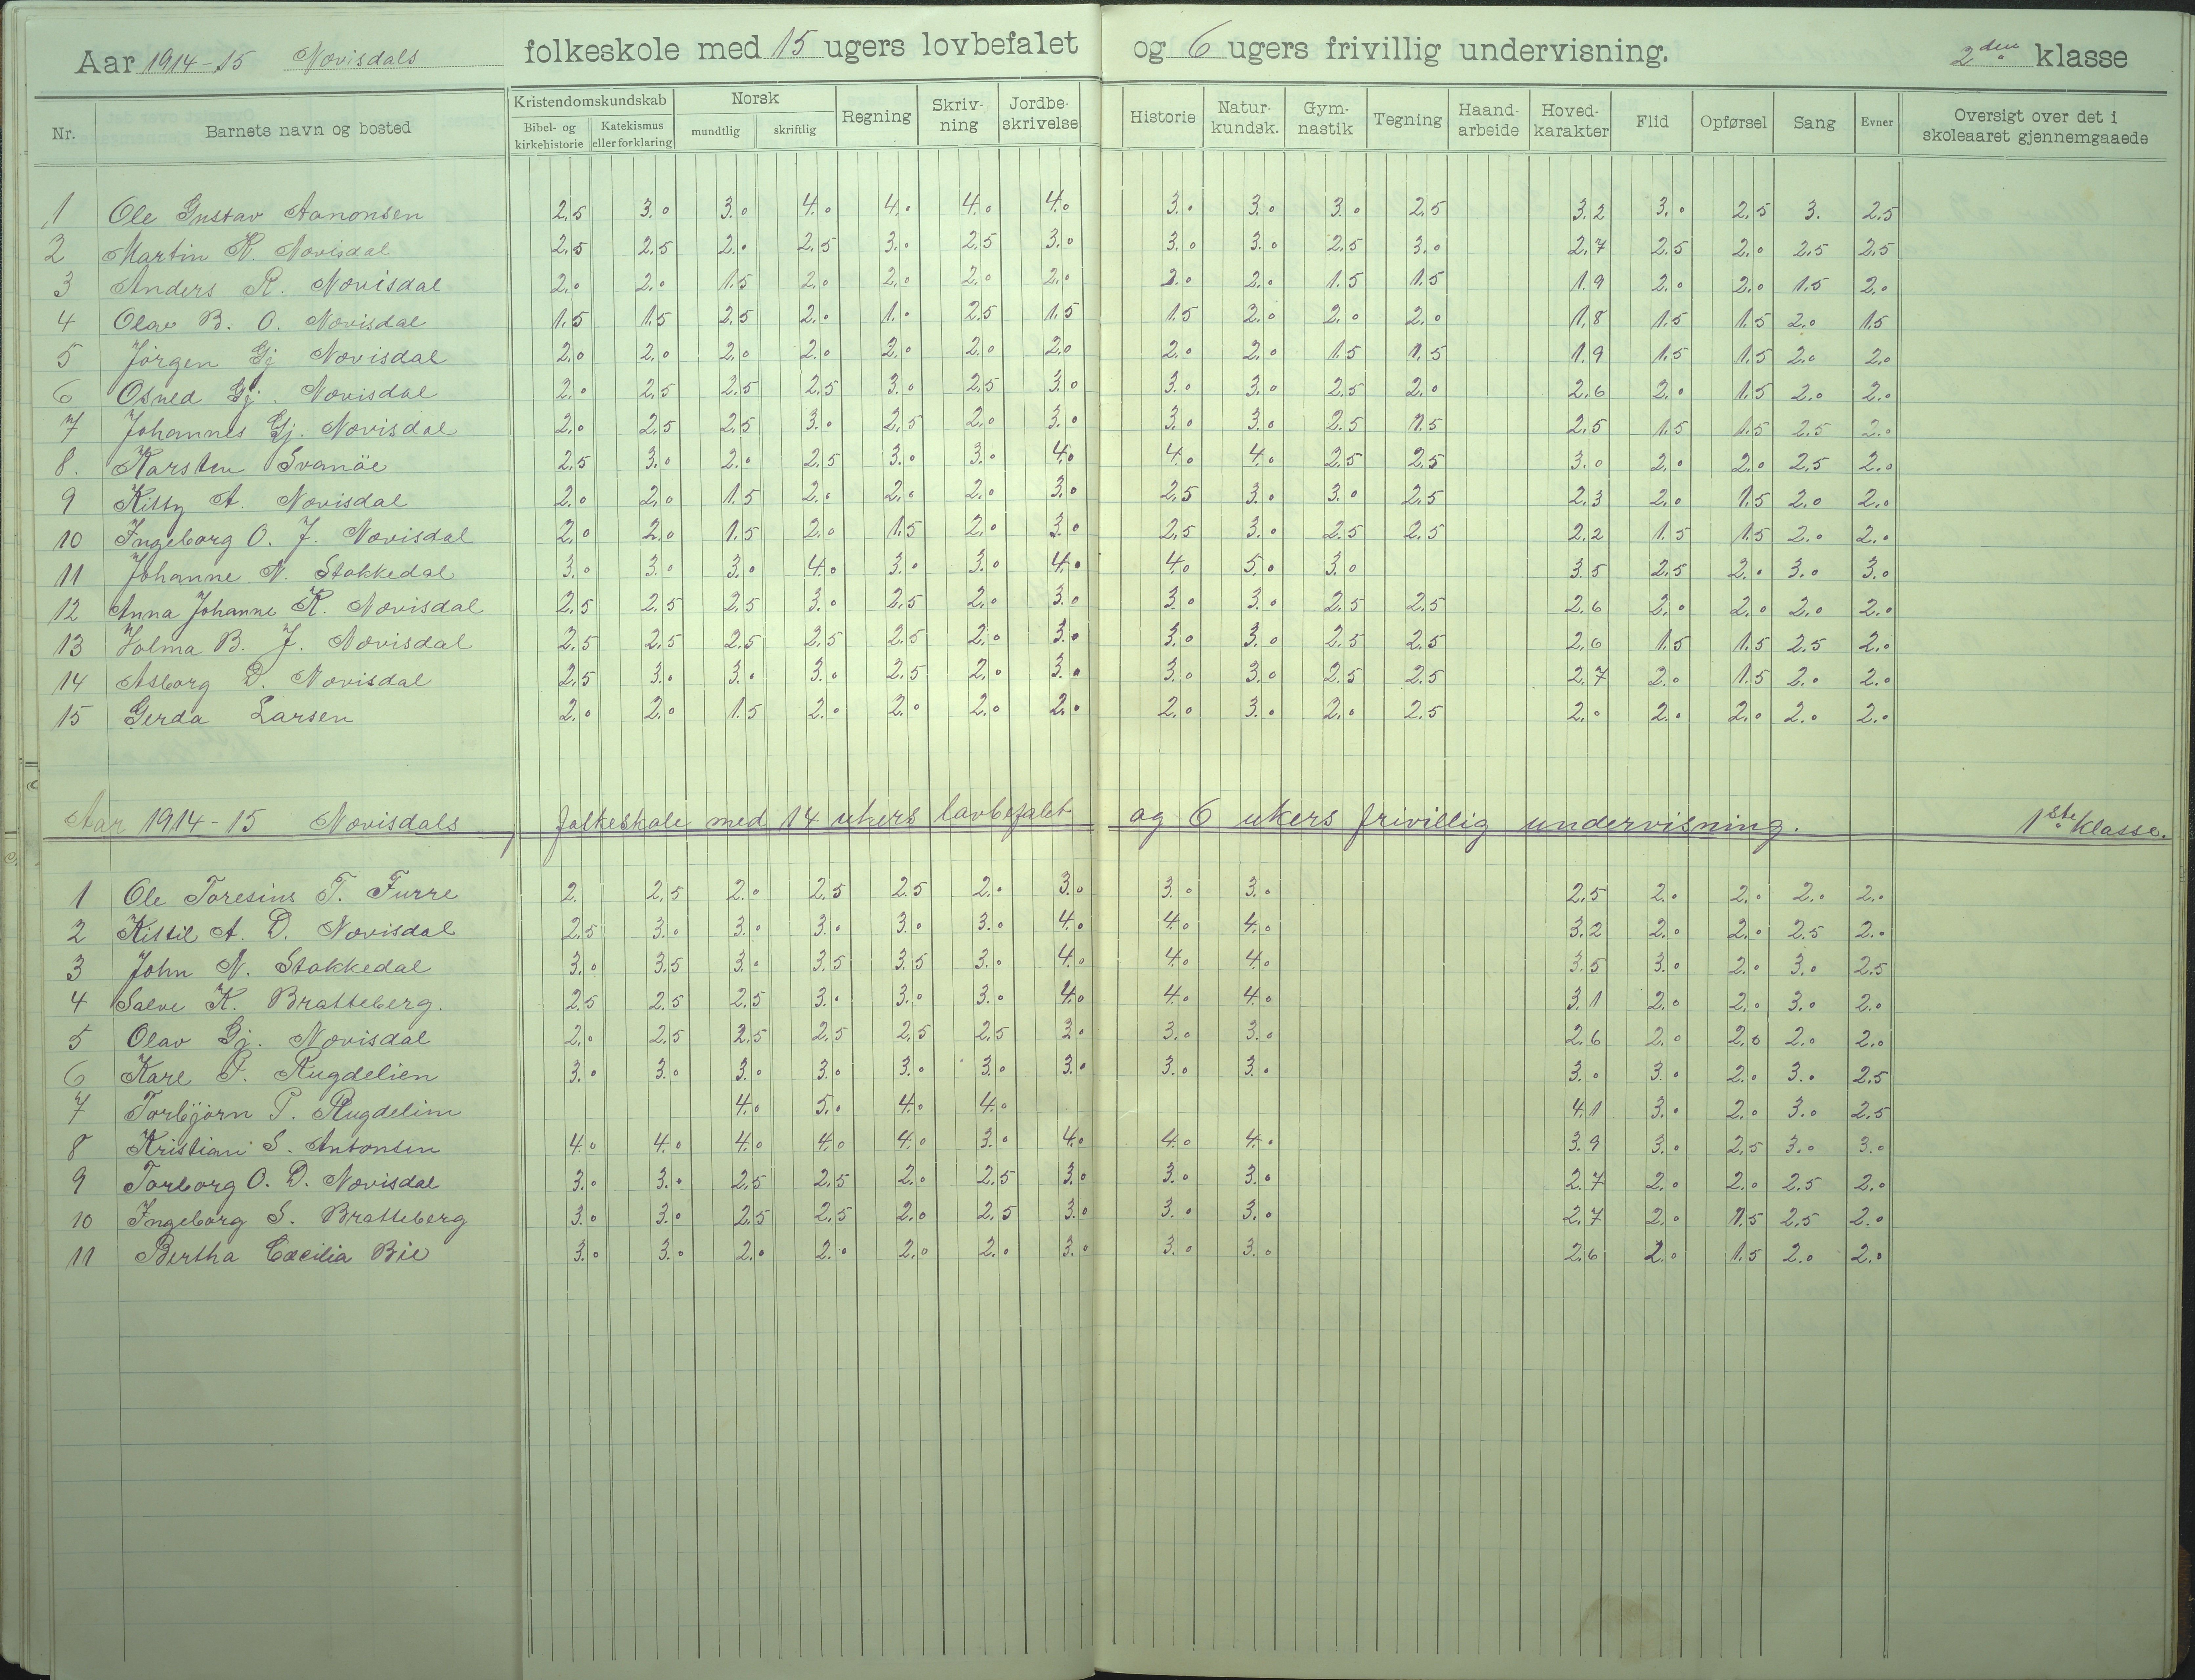 Aar 1914-15 Novisdals folkeskole med 15 ugers lovbefalet og 6 ugers frivillig undervisning. 2den klasse
Nr. Barnets navn og bosted Kristendomskundskab Bibel- og kirkehistorie Katekismus eller forklaring Norsk mundtlig skriftlig Regning Skriv-ning Jordbe-skrivelse Historie Natur-kundsk. Gym-nastik Tegning Haand-arbeide Hoved-karakter Flid Opførsel Sang Evner Oversigt over det i skoleaaret gjennemgaaede
1 Ole Gustav Aanonsen 2,5 3.0 3.0 4.0 4.0 4.0 4.0 3.0 3.0 3.0 2,5 3.2 3.0 2,5 3. 2,5
2 Martin K. Novisdal 2,5 2,5 2.0 2,5 3.0 2,5 3.0 3.0 3.0 2,5 3.0 2,7 2,5 2.0 2,5 2,5
3 Anders R. Novisdal 2.0 2.0 1.5 2.0 2.0 2.0 2.0 2.0 2.0 1.5 1.5 1.9 2.0 2.0 1.5 2.0
4 Olav B. O. Novisdal 1.5 1.5 2,5 2.0 1.0 2,5 1.5 1.5 2.0 2.0 2.0 1.8 1.5 1.5 2.0 1.5
5 Jörgen Gj Novisdal 2.0 2.0 2.0 2.0 2.0 2.0 2.0 2.0 2.0 1.5 1.5 1.9 1.5 1.5 2.0 2.0
6 Osned Gj. Novisdal 2.0 2,5 2,5 2,5 3.0 2,5 3.0 3.0 3.0 2,5 2.0 2,6 2.0 1.5 2.0 2.0
7 Johannes Gj. Novisdal 2.0 2,5 2,5 3.0 2,5 2.0 3.0 3.0 3.0 2,5 1.5 2,5 1.5 1.5 2,5 2.0
8. Karsten Svanöe 2,5 3.0 2.0 2,5 3.0 3.0 4.0 4.0 4.0 2,5 2,5 3.0 2.0 2.0 2,5 2.0
9 Kitty A. Novisdal 2.0 2.0 1.5 2.0 2.0 2.0 3.0 2,5 3.0 3.0 2,5 2,3 2.0 1.5 2.0 2.0
10 Ingeborg O. J. Novisdal 2.0 2.0 1.5 2.0 1.5 2.0 3.0 2,5 3.0 2,5 2,5 2,2 1.5 1.5 2.0 2.0
11 Johanne N. Stokkedal 3.0 3.0 3.0 4.0 3.0 3.0 4.0 4.0 5.0 3.0 3.5 2,5 2.0 3.0 3.0
12 Anna Johanne K. Novisdal 2,5 2,5 2,5 3.0 2,5 2.0 3.0 3.0 3.0 2,5 2,5 2,6 2.0 2.0 2.0 2.0
13 Valma B. J. Novisdal 2,5 2,5 2,5 2,5 2,5 2.0 3.0 3.0 3.0 2,5 2,5 2,6 1.5 1.5 2,5 2.0
14 Asborg D. Novisdal 2,5 3.0 3.0 3.0 2,5 2.0 3.0 3.0 3.0 2,5 2,5 2,7 2.0 1.5 2.0 2.0
15 Gerda Larsen 2.0 2.0 1.5 2.0 2.0 2.0 2.0 2.0 3.0 2.0 2,5 2.0 2.0 2.0 2.0 2.0
Aar 1914-15 Novisdals folkeskole med 14 ukers lovbefalet og 6 ukers frivillig undervisning. 1ste klasse.
1 Ole Toresius T. Furre 2. 2,5 2.0 2,5 2,5 2.0 3.0 3.0 3.0 2,5 2.0 2.0 2.0 2.0
2 Kittil A. D. Novisdal 2,5 3.0 3.0 3.0 3.0 3.0 4.0 4.0 4.0 3.2 2.0 2.0 2,5 2.0
3 John N. Stokkedal 3.0 3.5 3.0 3.5 3.5 3.0 4.0 4.0 4.0 3.5 3.0 2.0 3.0 2,5
4 Salve K. Bratteberg. 2,5 2,5 2,5 3.0 3.0 3.0 4.0 4.0 4.0 3.1 2.0 2.0 3.0 2.0
5 Olav Gj. Novisdal 2.0 2,5 2,5 2,5 2,5 2,5 3.0 3.0 3.0 2,6 2.0 2.0 2.0 2.0
6 Kare P. Rugdelien 3.0 3.0 3.0 3.0 3.0 3.0 3.0 3.0 3.0 3.0 3.0 2.0 3.0 2,5
7 Torbjörn P. Rugdelien 4.0 5.0 4.0 4.0 4.1 3.0 2.0 3.0 2,5
8 Kristiani S. Antonsen 4.0 4.0 4.0 4.0 4.0 3.0 4.0 4.0 4.0 3.9 3.0 2,5 3.0 3.0
9 Torborg O. D. Novisdal 3.0 3.0 2,5 2,5 2.0 2,5 3.0 3.0 3.0 2,7 2.0 2.0 2,5 2.0
10 Ingeborg S. Bratteberg 3.0 3.0 2,5 2,5 2.0 2,5 3.0 3.0 3.0 2,7 2.0 1.5 2,5 2.0
11 Bertha Cæcilia Bie 3.0 3.0 2.0 2.0 2.0 2.0 3.0 3.0 3.0 2,6 2.0 1.5 2.0 2.0